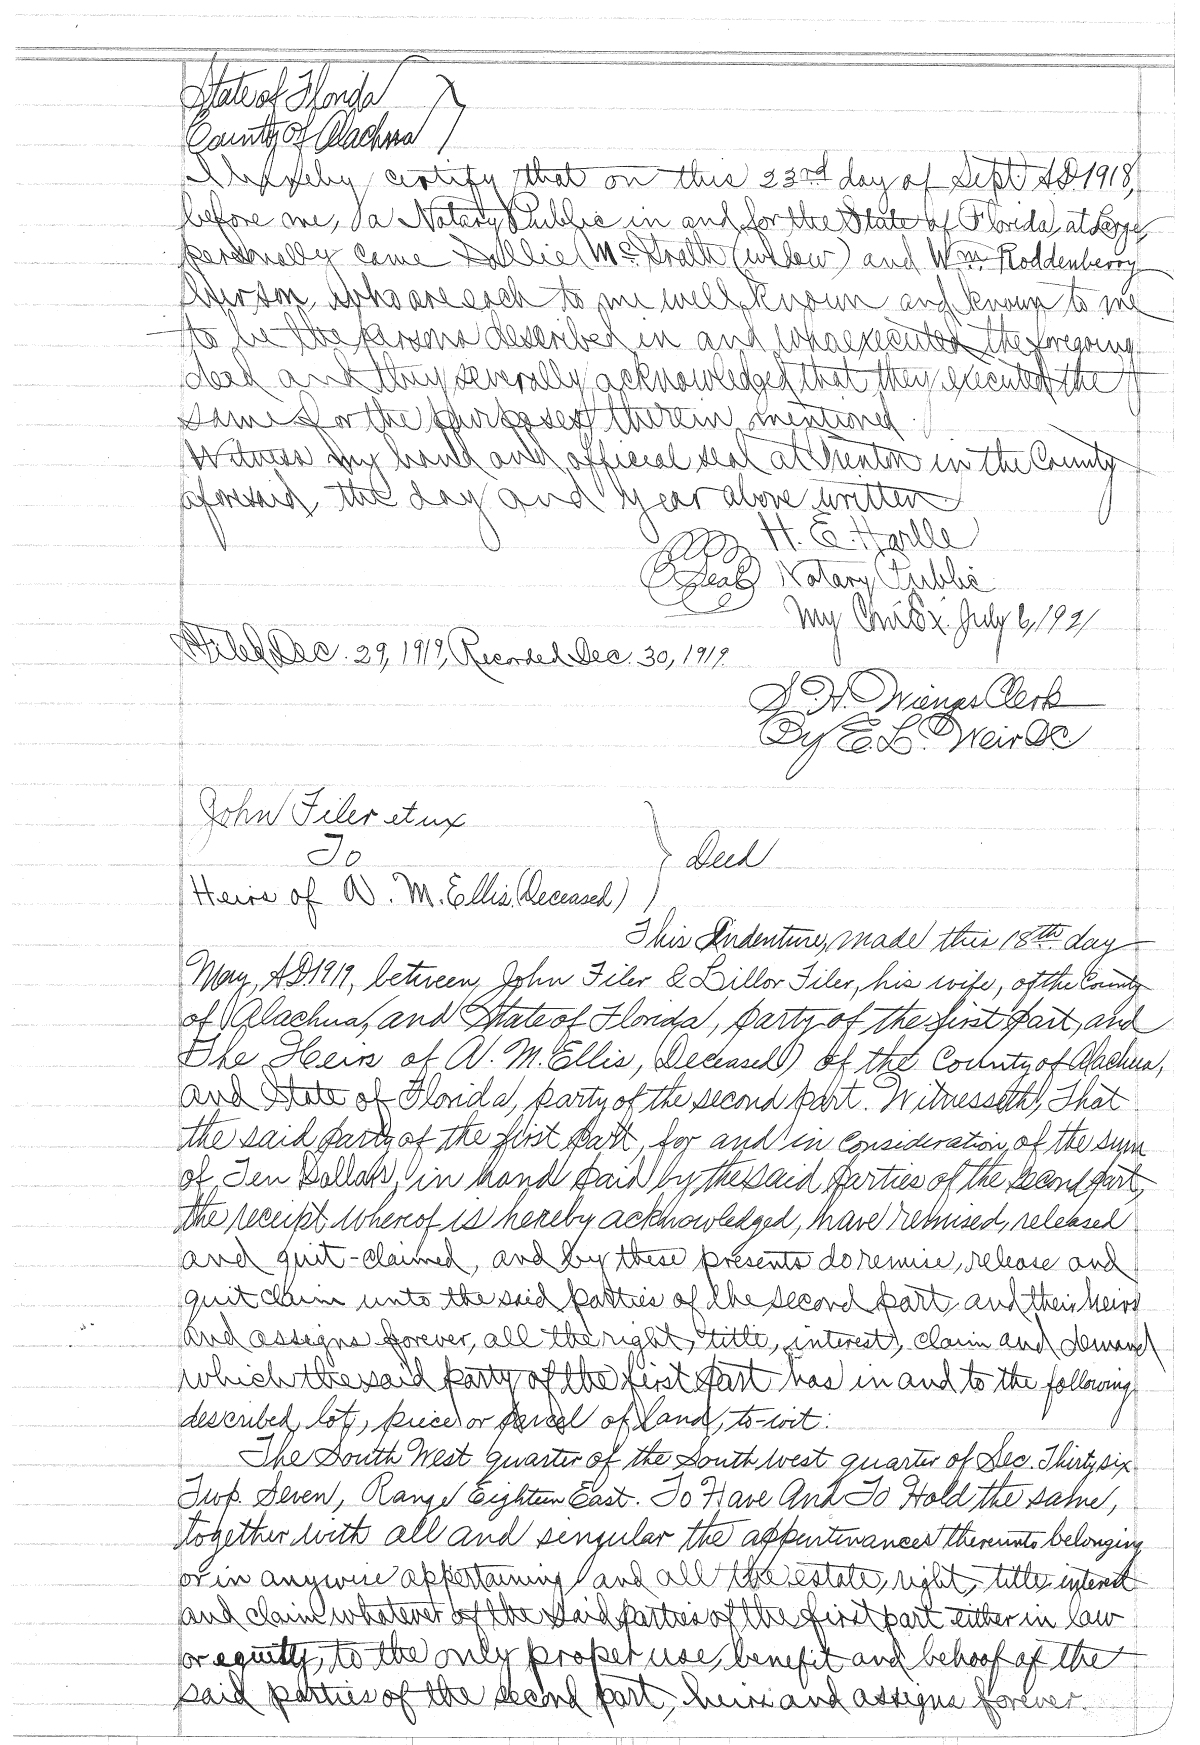 State of Florida
County of Alachua
I hereby certify that on this 23rd day of Sept. A.D. 1918,
before me, a Notary Public in and for the State of Florida at Large
personally came Sallie Mc Grath (widow) and Wm. Roddenberry
her son, who are each to me well known and known to me
to be the persons described in and who executed the foregoing
deed and they severally acknowledged that they executed the
same for the purposes therein mentioned.
Witness my hand and official seal at Trenton in the County
aforesaid, the day and year above written
H. E. Harlle
Seal Notary Public
My Com Ex. July 6, 1921
Filed Dec. 29, 1919, Recorded Dec. 30, 1919.
S. H. Wienges Clerk
By E. L. Weir DC
John Filer et ux
To
Deed
Heirs of W. M. Ellis, (Deceased)
This Indenture, made this 18th day
May, A.D. 1919, between John Filer & Lillor Filer, his wife, of the County
of Alachua, and State of Florida, party of the first part, and
The Heirs of W. M. Ellis, (Deceased) of the County of Alachua,
and State of Florida, party of the second part. Witnesseth, That
the said party of the first part, for and in consideration of the sum
of Ten Dollars, in hand paid by the said parties of the second part,
the receipt whereof is hereby acknowledged, have remised, released
and quit-claimed, and by these presents do remise, release and
quit claim unto the said parties of the second part, and their heirs
and assigns forever, all the right, title, interest, claim and demand
which the said party of the first part has in and to the following
described lot, piece or parcel of land, to-wit:
The South West quarter of the South west quarter of Sec. Thirty six
Twp. Seven, Range Eighteen East. To Have And To Hold the same,
together with all and singular the appurtinances thereunto belonging
or in anywise appertaining and all the estate, right, title interest
and claim whatever of the said parties of the first part either in law
or equity, to the only proper use, benefit and behoof of the
said parties of the second part, heirs and assigns forever.